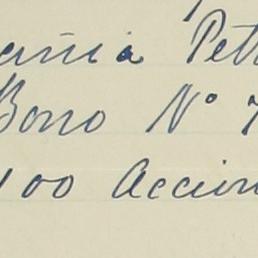 añia Pet
Bono Nº 7
100 Accion